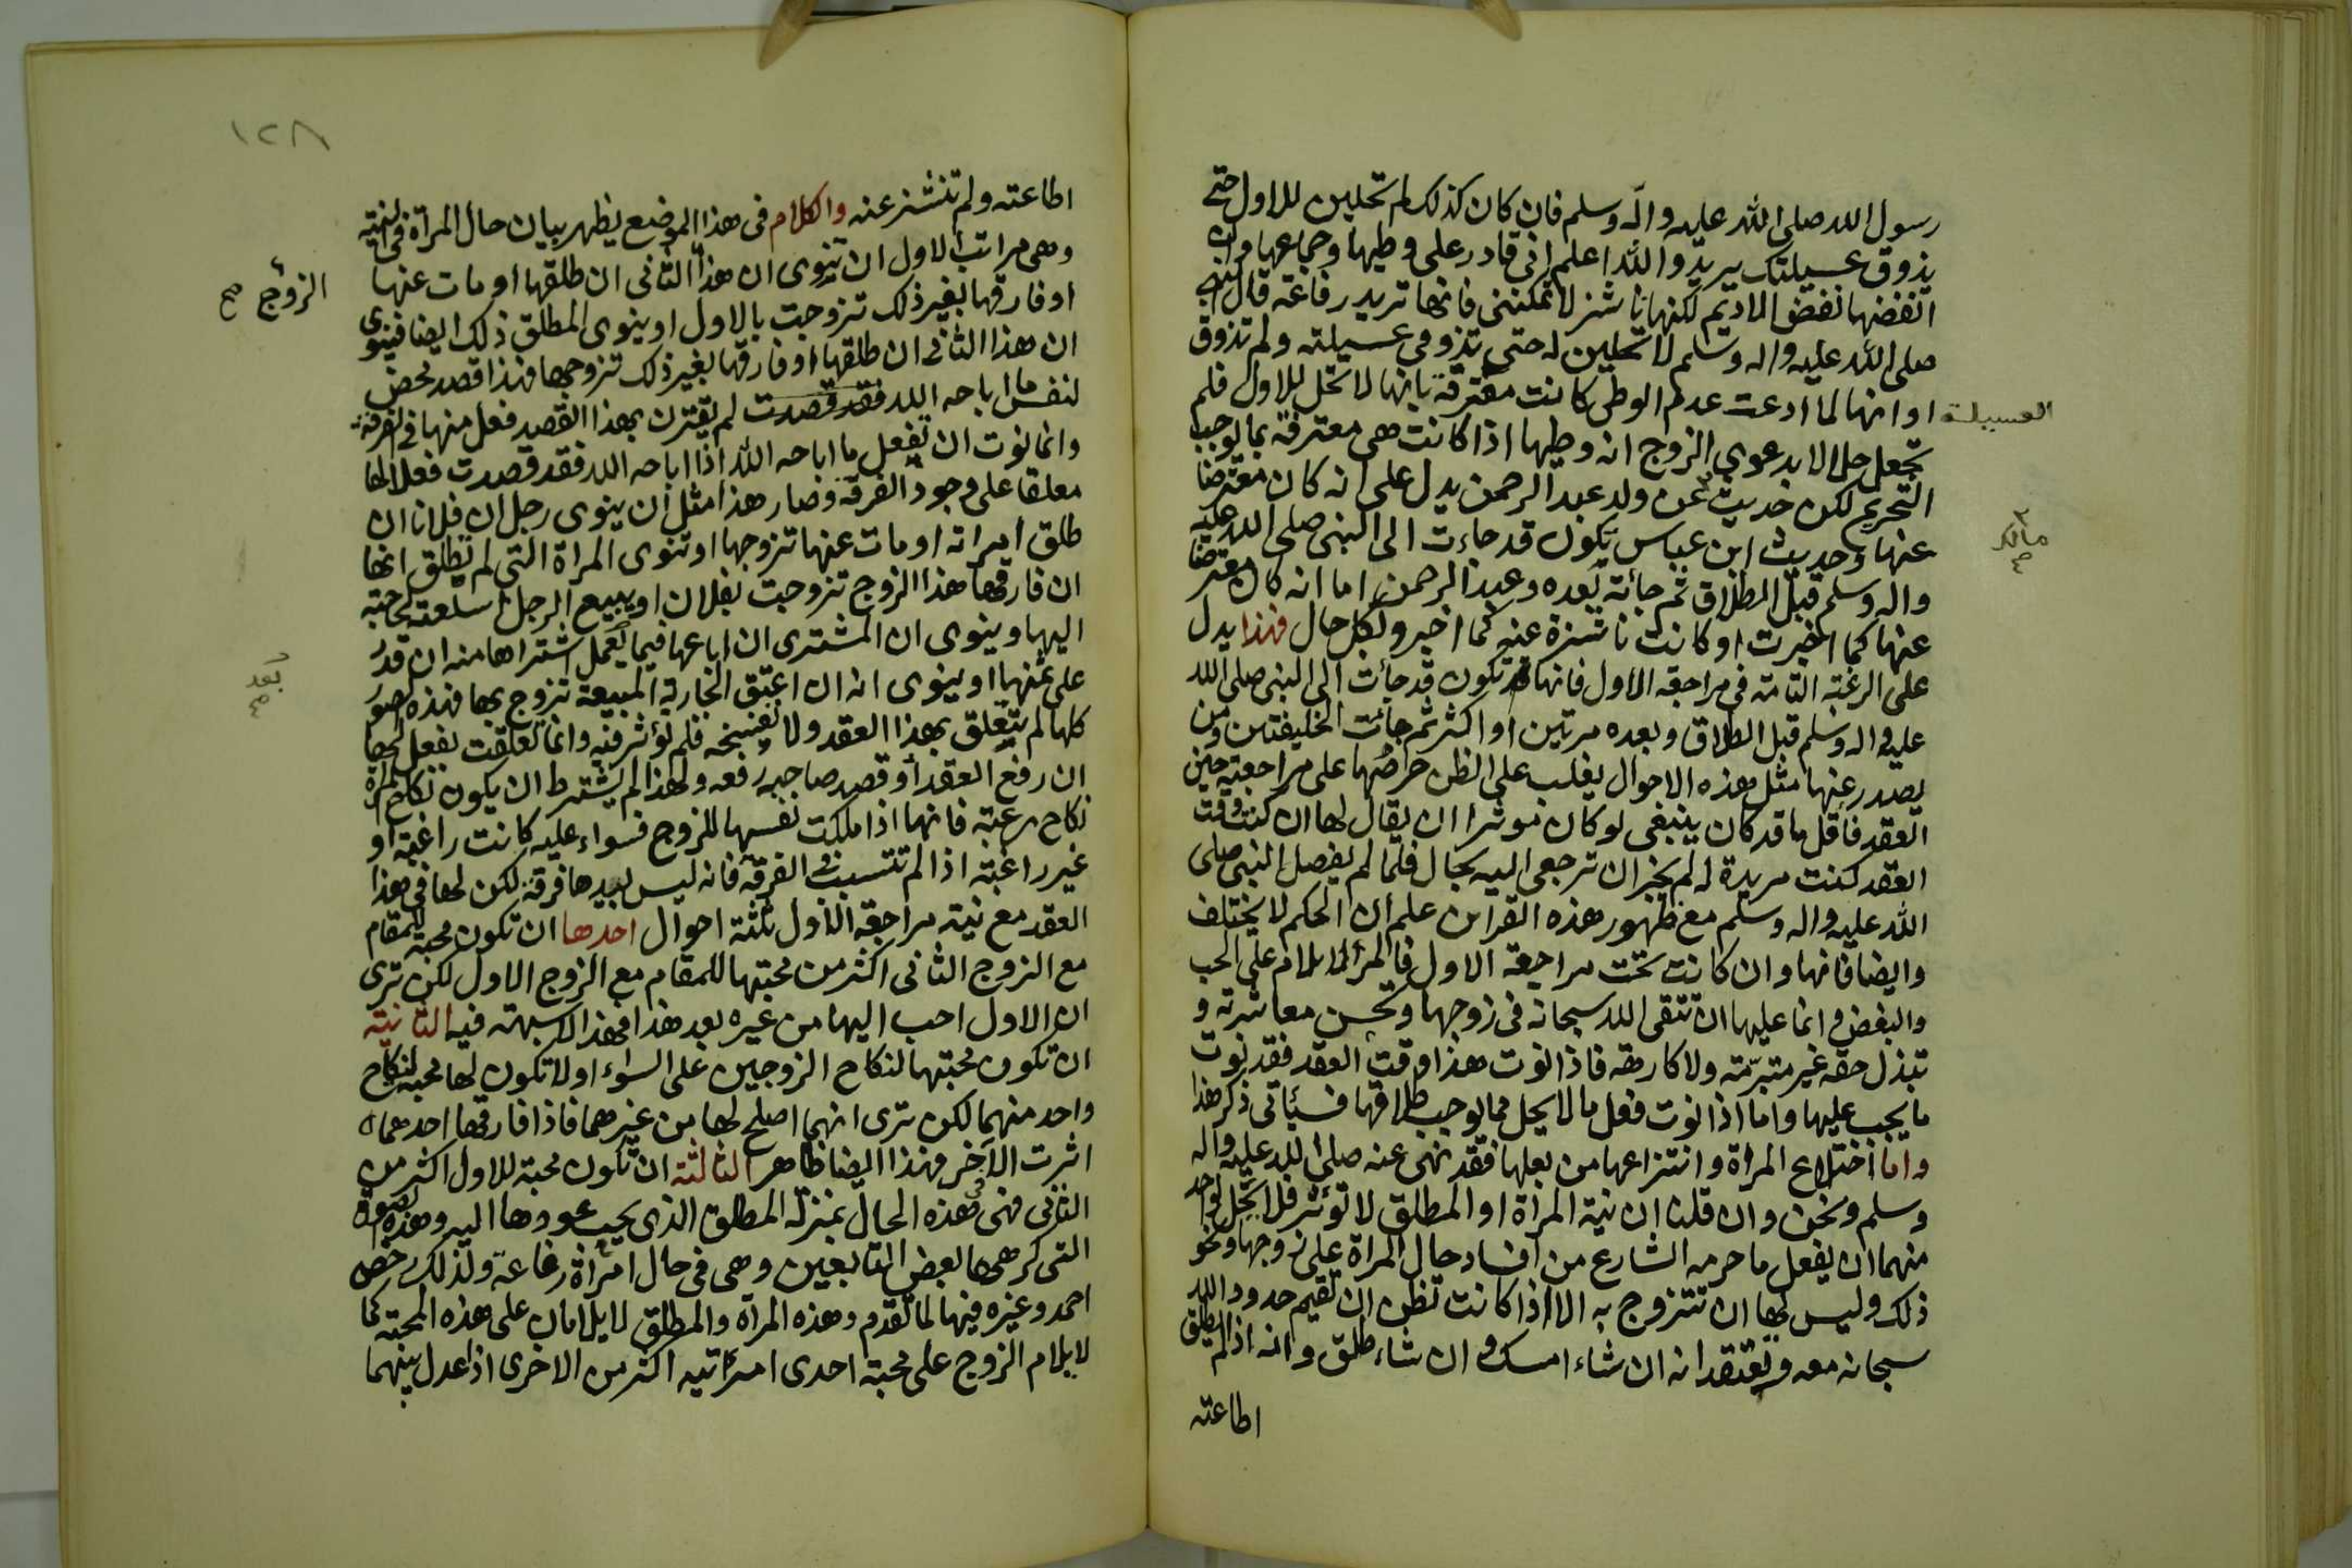 رسول الله صلى الله عليه واله وسلم فان كان كذلك لم تحلين للاول حتى
يذوق عسيلتك يريد والله اعلم انى قادر على وطيها وجماعها وان
انفضها نفض الاديم لكنها ناشز لا تمكننى فانها تريد رفاعة قال النبى
صلى الله عليه واله وسلم لا تحلين له حتى تذوقى عسيلته ولم تذوق
العسيلة
او انها لما ادعت عدم الوطى كانت معترفة بانها لا تحل للاول فلم
تجعل حلالا بدعوى الزوج انه وطيها اذا كانت هى معترفة بما يوجب
التحريم لكن حديث عن ولد عبد الرحمن يدل على انه كان معترضا
مالك
عنها وحديث ابن عباس يكون قد جاءت الى النبى صلى الله عليه
واله وسلم قبل الطلاق ثم جائته بعده وعبد الرحمن اما انه كان معترضا
عنها كما اخبرت او كانت ناشزة عنه كما اخبر ولكل حال فهذا يدل
على الرغبة التامة فى مراجعة الاول فانها قد تكون قد جاءت الى النبى صلى الله
عليه واله وسلم قبل الطلاق وبعده مرتين او اكثر ثم جائت الخليفتين ومن
يصدر عنها مثل هذه الاحوال يغلب على الظن حرصها على مراجعته حين
العقد فاقل ما قد كان ينبغى لو كان موثرا ان يقال لها ان كنت وقت
العقد كنت مريدة له لم يجز ان ترجعى اليه بحال فلما لم يفصل النبى صلى
الله عليه واله وسلم مع ظهور هذه القراين علم ان الحكم لا يختلف
وايضا فانها وان كانت تحت مراجعة الاول فالمرأة لا تلام على الحب
والبغض وانما عليها ان تتقى الله سبحانه فى زوجها وتحسن معاشرته و
تبذل حقه غير متبرمة ولا كارهة فاذا نوت هذا وقت العقد فقد نوت
ما يجب عليها واما اذا نوت فعل ما لا يحل مما يوجب طلاقها فسيأتى ذكر هذا
واما اختلاع المراة وانتزاعها من بعلها فقد نهى عنه صلى الله عليه واله
وسلم ونحن وان قلنا ان نية المرأة او المطلق لا تؤثر فلا يحل لواحد
منهما ان يفعل ما حرمه الشارع من افساد حال المراة على زوجها ونحو
ذلك وليس لها ان تتزوج به الا اذا كانت تظن ان تقيم حدود الله
سبحانه معه وتعتقد انه ان شاء امسك وان شاء طلق وانه اذا لم يطلق
اطاعته
١٢٨
اطاعته ولم تنشز عنه والكلام فى هذا الموضع يظهر ببيان حال المرأة فى النية
وهى مراتب الاول ان تنوى ان هذا الثانى ان طلقها او مات عنها
الزوج صح
او فارقها بغير ذلك تزوجت بالاول او ينوى المطلق ذلك ايضا فينوى
ان هذا الثانى ان طلقها او فارقها بغير ذلك تزوجها فهذا قصد محض
لنفس ما اباحه الله فقد قصدت لم يقترن بهذا القصد فعل منها فى الفرقة
وانما نوت ان تفعل ما اباحه الله اذا اباحه الله فقد قصدت فعلا لها
معلقا على وجود الفرقة وصار هذا مثل ان ينوى رجل ان فلانا ان
طلق امرأته او مات عنها تزوجها او تنوى المراة التى لم تطلق انها
ان فارقها هذا الزوج تزوجت بفلان او يبيع الرجل سلعته لحاجته
اليها وينوى ان المشترى ان اباعها فيما يعمل اشتراها منه ان قدر
بعد
على ثمنها او ينوى انه ان اعتق الجارية المبيعة تزوج بها فهذه صور
كلها لم تتعلق بهذا العقد ولا بفسخه فلم تؤثر فيه وانما تعلقت بفعل لها
ان رفع العقد او قصد صاحبه رفعه ولهذا لم يشترط ان يكون نكاح المرأة
نكاح رغبة فانها اذا ملكت نفسها للزوج فسواء عليه كانت راغبة او
غير راغبة اذا لم تتسبب فى الفرقة فانه ليس بيدها فرقة لكن لها فى هذا
العقد مع نية مراجعة الاول ثلثة احوال احدها ان تكون محبة للمقام
مع الزوج الثانى اكثر من محبتها للمقام مع الزوج الاول لكن ترى
ان الاول احب اليها من غيره بعد هذا فهذا لا شبهة فيه الثانية
ان تكون محبتها لنكاح الزوجين على السواء او لا تكون لها محبة لنكاح
واحد منهما لكن ترى انهما اصلح لها من غيرهما فاذا فارقها احدهما
اثرت الآخر فهذا ايضا ظاهر الثالثة ان تكون محبة للاول اكثر من
الثانى فهى فى هذه الحال بمنزلة المطلق الذى يحب عودها اليه وهذه الصورة
التى كرهها بعض التابعين وهى فى حال امرأة رفاعة ولذلك رخص
احمد وغيره فيها لما تقدم وهذه المرأة والمطلق لا يلامان على هذه المحبة كما
لا يلام الزوج على محبة احدى امرأتيه اكثر من الاخرى اذا عدل بينهما